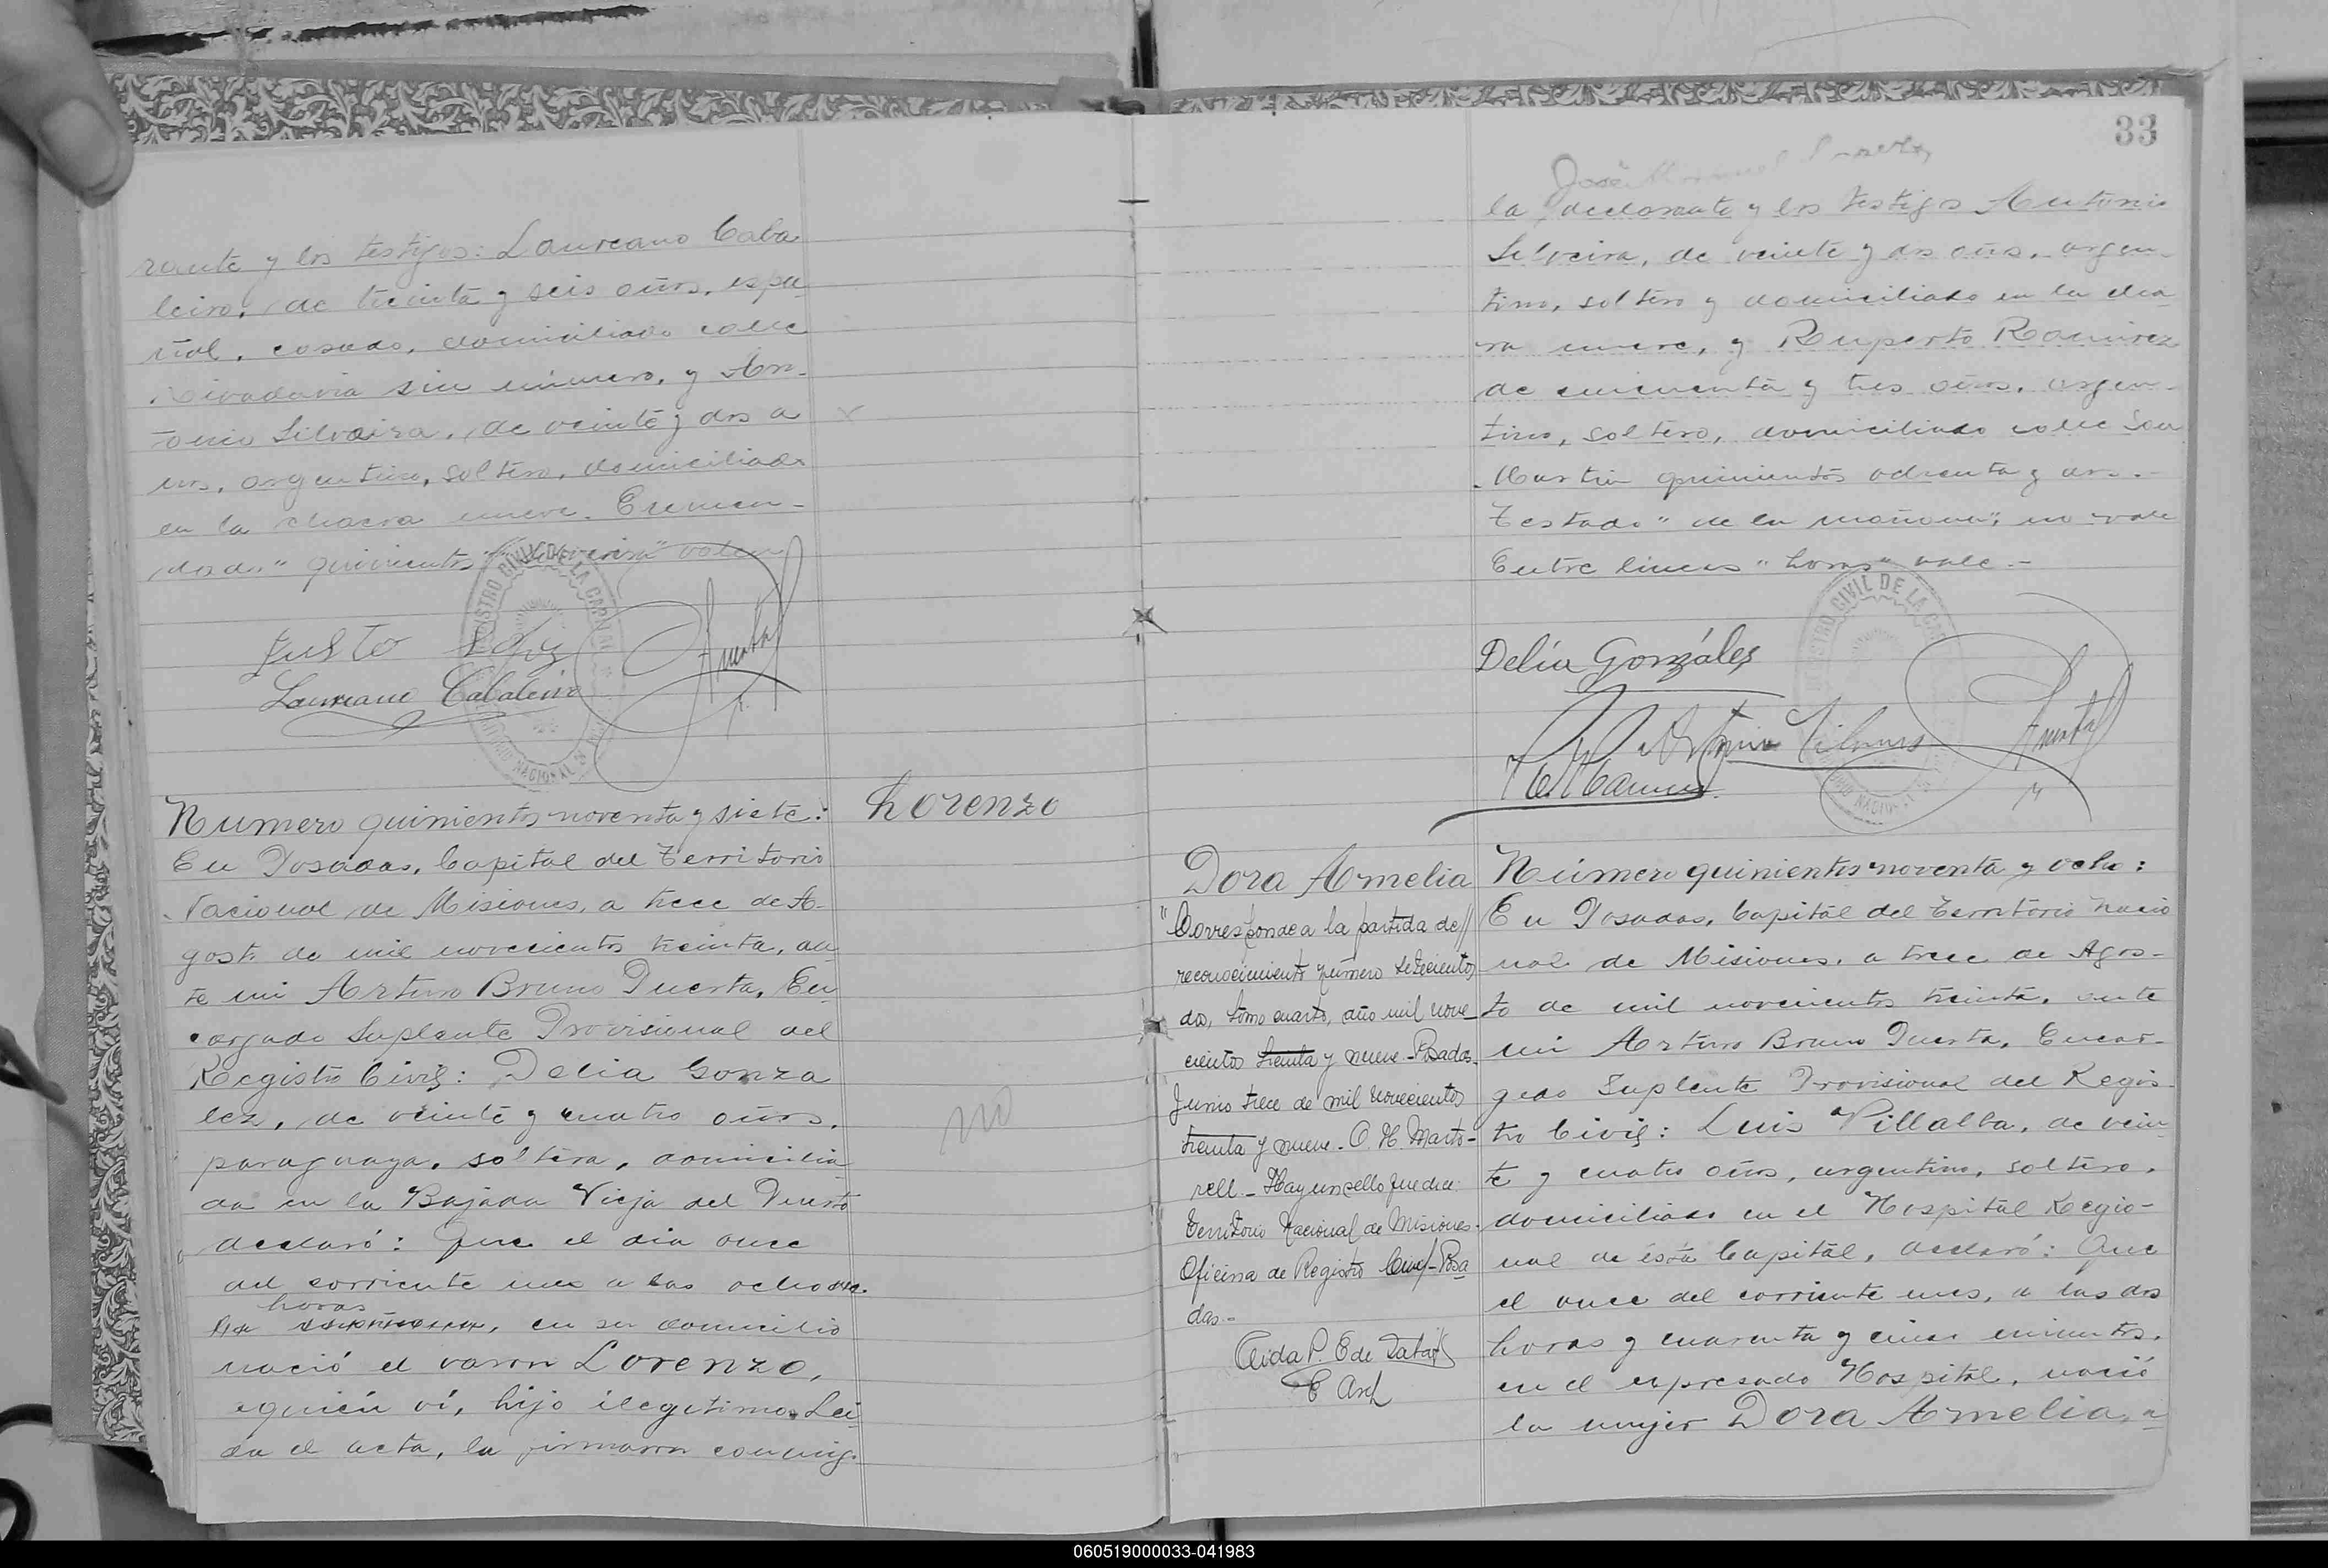 rante y los testigos: Laureano Caba
leiro, de treinta y seis años, espa-
ñol, casado, domiciliado calle
Rivadavia sin número, y An-
tonio Silveira, de veinte y dos a
ños, argentino, soltero, domiciliado
en la chacra nueve. Enmen-
dado "quinientos" valen
Justo
Laureano Cabaleiro
REGISTRO CIVIL DE LA CAPITAL
Numero quinientos noventa y siete:
En Posadas, Capital del Territorio
Nacional de Misiones, a trece de A-
gosto de mil novecientos treinta, an
te mi Arturo Bruno Puerta, En-
cargado Suplente Provisional del
Registro Civil: Delia Gonza
lez, de veinte y cuatro años,
paraguaya, soltera, domicilia
da en la Bajada Vieja del Puerto
declaró: Que el dia once
del corriente mes a las ocho
horas
en su domicilio
nació el varon Lorenzo,
a quién ví, hijo ilegitimo. Lei-
da el acta, la firmaron conmig-
Lorenzo
no
33
José
la declarante y los testigos Antonio
Silveira, de veinte y dos años, argen-
tino, soltero y domiciliado en la cha
cra nueve, y Ruperto Ramirez
de cincuenta y tres años, argen-
tino, soltero, domiciliado calle San
Martin quinientos ochenta y dos.-
Testado "de la mañana", no vale
Entre lineas "horas" vale.-
Delia Gonzáles
REGISTRO CIVIL DE LA
Dora Amelia
"Corresponde a la partida de//
reconocimiento número setecientos
dos, tomo cuarto, año mil nove-
cientos treinta y nueve.-Posadas,
Junio trece de mil novecientos
treinta y nueve.- O. H. Marto-
rell.- Hay un sello que dice:
Territorio Nacional de Misiones.
Oficina de Registro Civil-Posa
das.-
Número quinientos noventa y ocho:
En Posadas, Capital del Territorio Nacio
nal de Misiones, a trece de Agos-
to de mil novecientos treinta, ante
mi Arturo Bruno Puerta, Encar-
gado Suplente Provisional del Regis-
tro Civil: Luis Villalba, de vein-
te y cuatro años, argentino, soltero,
domiciliado en el Hospital Regio-
nal de ésta Capital, declaró: Que
el once del corriente mes, a las dos
horas y cuarenta y cinco minutos,
en el expresado Hospital, nació
la mujer Dora Amelia, a
060519000033-041983